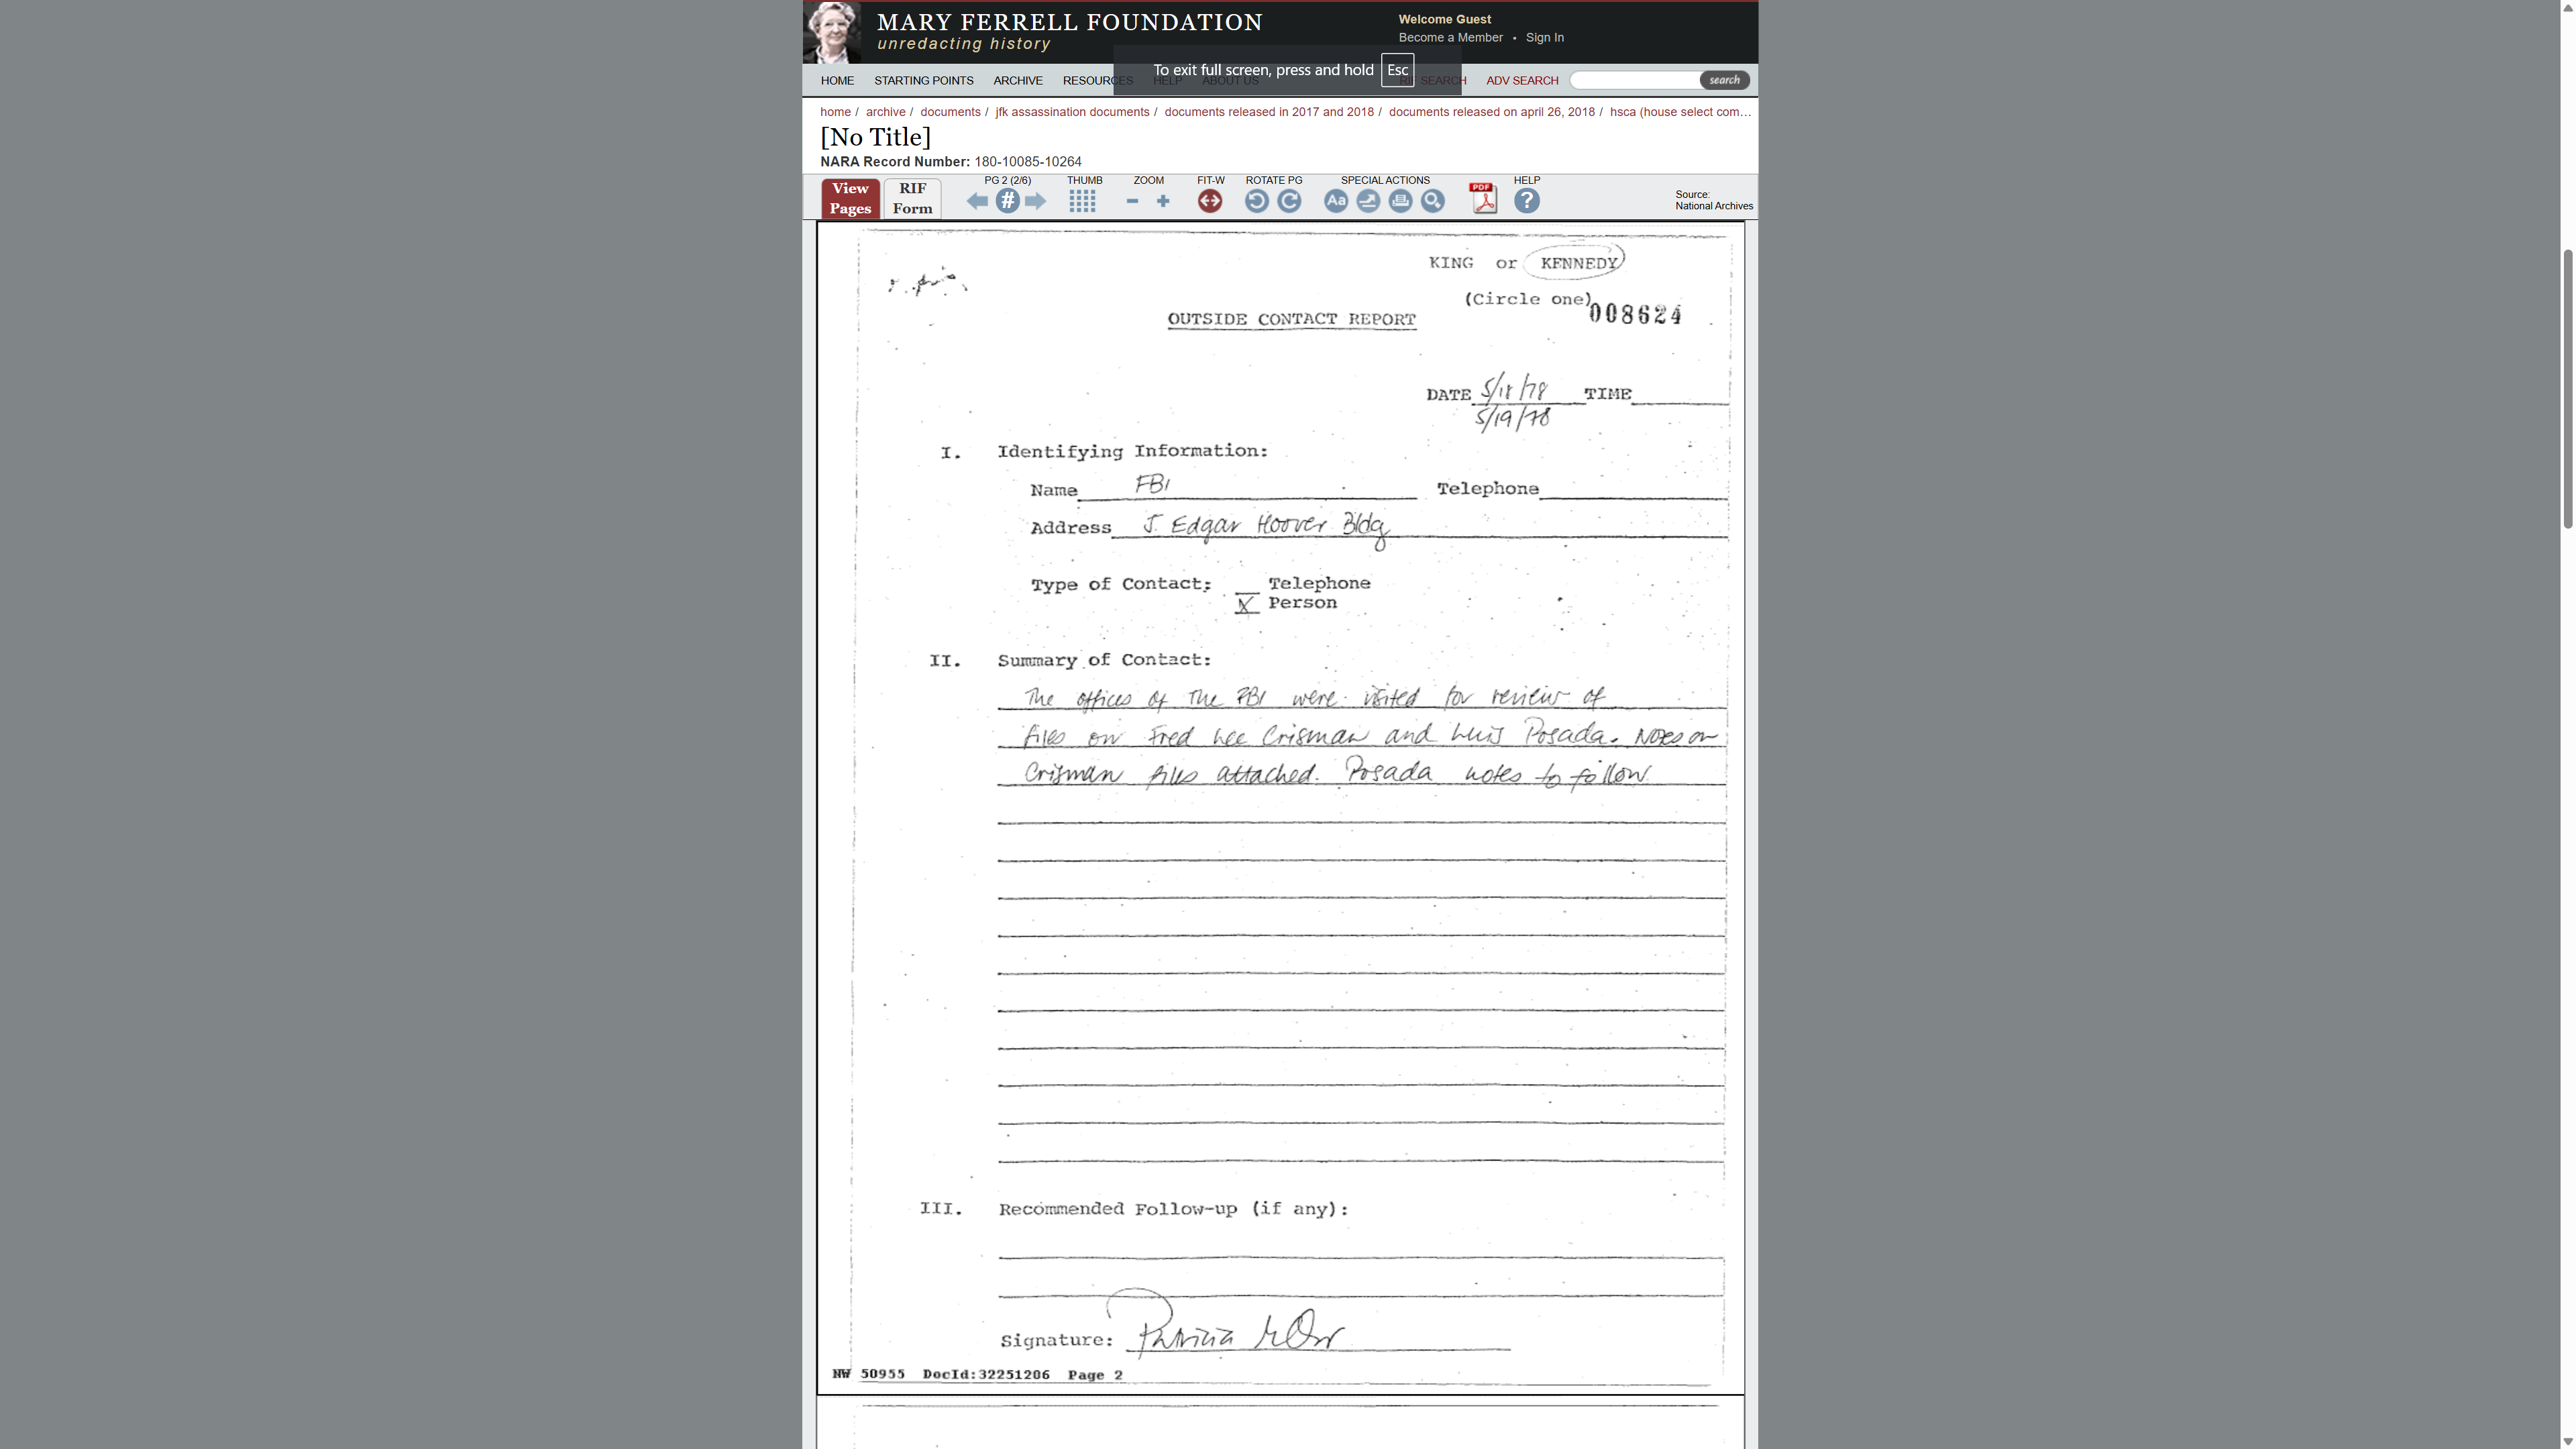 MARY FERRELL FOUNDATION
unredacting history
Welcome Guest
Become a Member • Sign In
To exit full screen, press and hold Esc
HOME STARTING POINTS ARCHIVE RESOURCES HELP ABOUT US RIF SEARCH ADV SEARCH search
home / archive / documents / jfk assassination documents / documents released in 2017 and 2018 / documents released on april 26, 2018 / hsca (house select com...
[No Title]
NARA Record Number: 180-10085-10264
View Pages
RIF Form
PG 2 (2/6) THUMB ZOOM FIT-W ROTATE PG SPECIAL ACTIONS HELP
# Aa PDF ?
Source:
National Archives
KING or KENNEDY
(Circle one)
008624
OUTSIDE CONTACT REPORT
DATE 5/18/78 TIME
5/19/78
I. Identifying Information:
Name FBI Telephone
Address J. Edgar Hoover Bldg
Type of Contact: Telephone
X Person
II. Summary of Contact:
The offices of the FBI were visited for review of
files on Fred Lee Crisman and Luis Posada. Notes on
Crisman files attached. Posada notes to follow
III. Recommended Follow-up (if any):
Signature: Patricia M Orr
NW 50955 DocId:32251206 Page 2